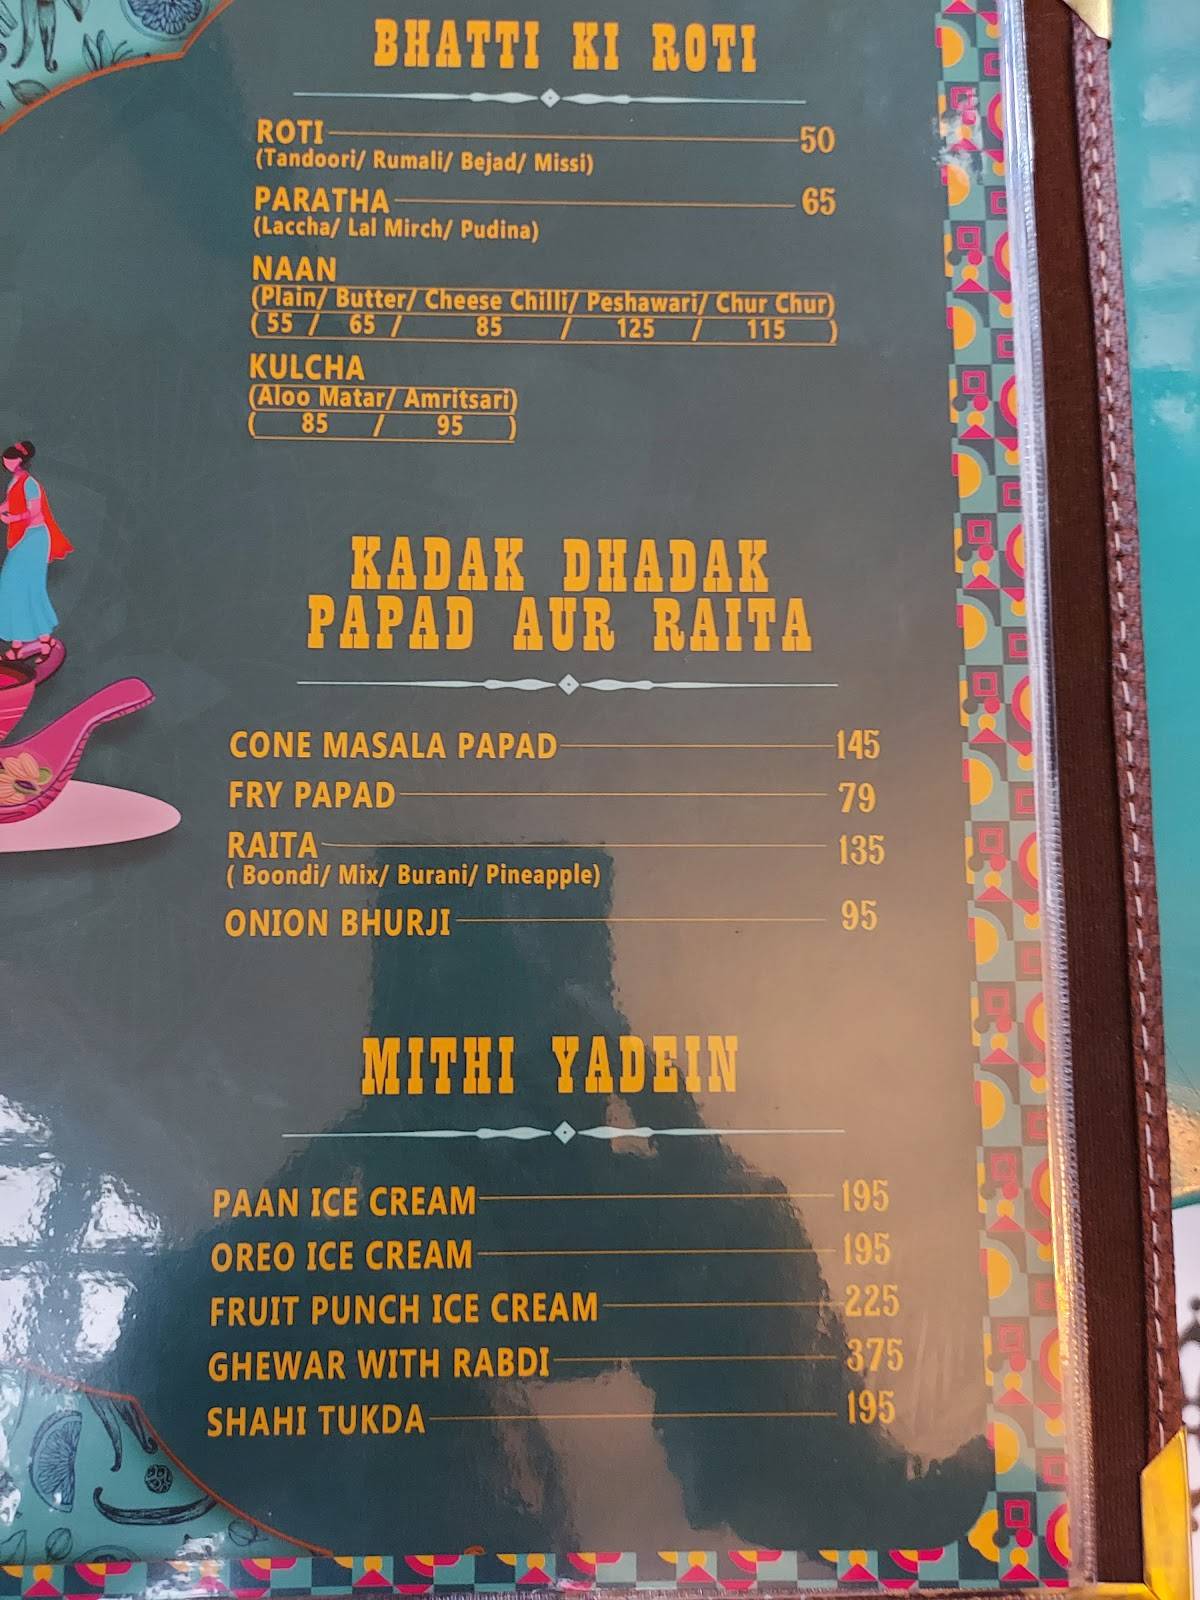 BHATTI KI ROTI
ROTI 50
(Tandoori/ Rumali/ Bejad/ Missi)
PARATHA 65
(Laccha/ Lal Mirch/ Pudina)
NAAN
(Plain/ Butter/ Cheese Chilli/ Peshawari/ Chur Chur)
( 55 / 65 / 85 / 125 / 115 )
KULCHA
(Aloo Matar/ Amritsari)
( 85 / 95 )
KADAK DHADAK
PAPAD AUR RAITA
CONE MASALA PAPAD 145
FRY PAPAD 79
RAITA 135
( Boondi/ Mix/ Burani/ Pineapple)
ONION BHURJI 95
MITHI YADEIN
PAAN ICE CREAM 195
OREO ICE CREAM 195
FRUIT PUNCH ICE CREAM 225
GHEWAR WITH RABDI 375
SHAHI TUKDA 195